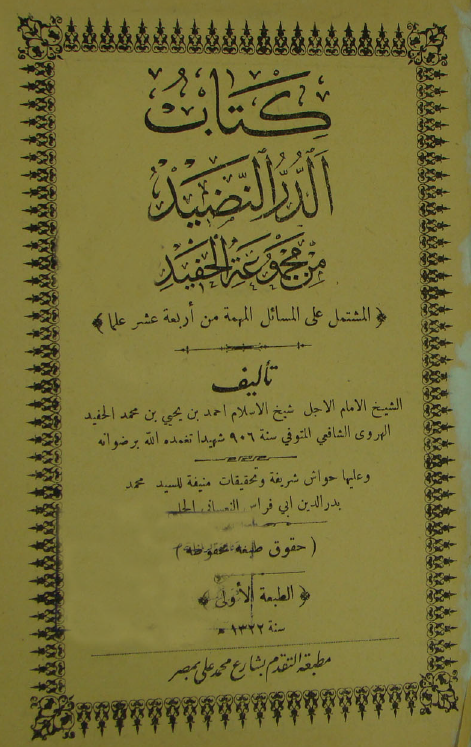 كتاب
الدر النضيد
من مجموعة الحفيد
﴿ المشتمل على المسائل المهمة من أربعة عشر علما ﴾
تأليف
الشيخ الامام الاجل شيخ الاسلام احمد بن يحيي بن محمد الحفيد
الهروى الشافعي المتوفي سنة ٩٠٦ شهيدا تغمده الله برضوانه
وعليها حواش شريفة وتحقيقات منيفة للسيد محمد
بدرالدين ابي فراس النعساني الحلبي
( حقوق طبعه محفوظة )
﴿ الطبعة الأولى ﴾
سنة ١٣٢٢ ه
مطبعة التقدم بشارع محمد على بمصر